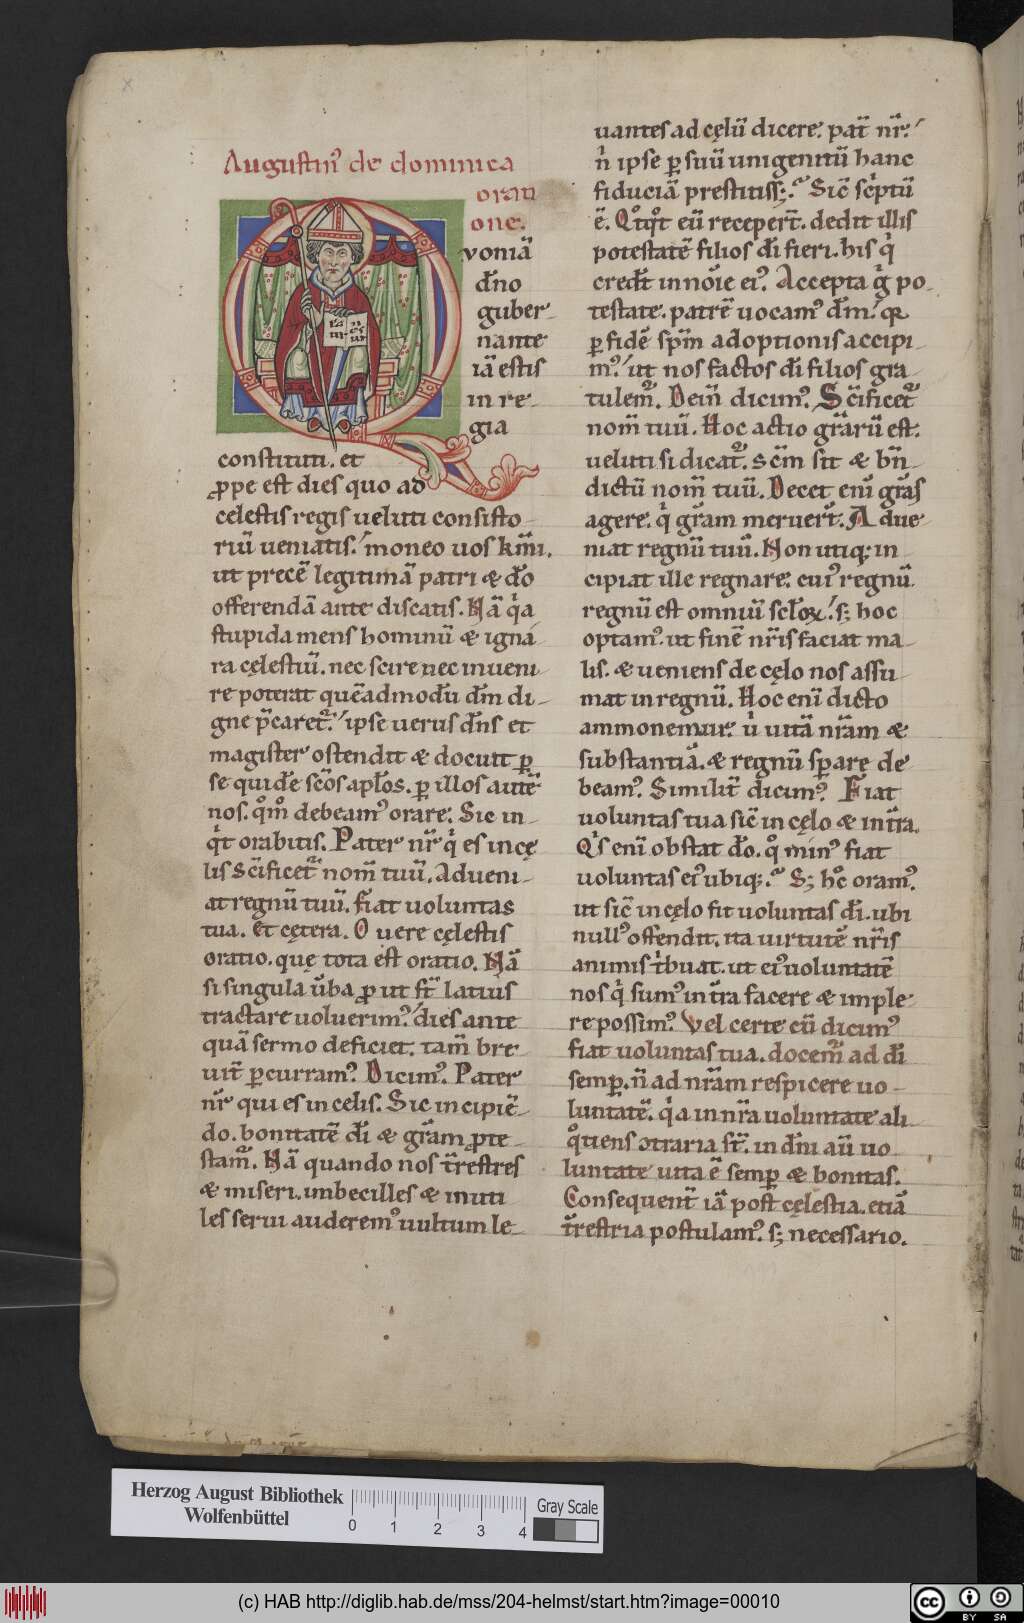 Augustin᷒ de dominica
orati
one.
Quoniā
dn̄o
guber-
nante
iā estis
in re-
gia
constituti. et
ꝓpe est dies quo ad
celestis regis ueluti consisto-
riū ueniatis. moneo uos km̄i.
ut precē legitimā patri & do̅
offerendā ante discatis. Nā qͥa
stupida mens hominū & igna-
ra cęlestiū. nec scire nec inueni-
re poterat quēadmodū dm̄ di-
gne p̄caret᷒. ipse uerus dn̄s et
magister ostendit & docuit ꝑ
se quidē scōs apłos. ꝑ illos autē
nos. qͦmͦ debeam᷒ orare. Sic in-
qͥt orabitis. Pater nr̄ qͥ es in cę-
lis Sc̄ificet᷒ nom̄ tuū. Adueni-
at regnū tuū. Fiat uoluntas
tua. Et cętera. O uere cęlestis
oratio. quę tota est oratio. Nā
si singula ūba ꝓut st̄ latius
tractare uoluerim᷒. dies ante
quā sermo deficiet. tam̄ bre-
uit̄ ꝑcurram᷒. Dicim᷒. Pater
nr̄ qui es in celis. Sic incipiē-
do. bonitatē dī & gr̄am ꝓte-
stam᷒. Nā quando nos t̄restres
& miseri. imbecilles & inuti
les serui auderem᷒ uultum le-
uantes ad cęlū dicere. pat̄ nr̄.
n̄ ipse ꝑ suū unigenitū hanc
fiduciā prestitiss;. Sic̄ scͥptū
ē. Qͦtqͦt eū recepert̄. dedit illis
potestatē filios dī fieri. his qͥ
credt̄ in noīe ei᷒. Accepta gͥ po-
testate. patrē uocam᷒ dm̄. qꝛ
ꝑ fidē spm̄ adoptionis accipi-
m᷒. ut nos factos dī filios gra-
tulem᷒. Dein̄ dicim᷒. Sc̄ificet᷒
nom̄ tuū. Hoc actio gr̄arū est.
ueluti si dicat᷒. sc̄m sit & bn̄-
dictū nom̄ tuū. Decet eni̅ gr̄as
agere. qͥ gr̄am meruert̄. Adue-
niat regnū tuū. Non utiqꝫ in-
cipiat ille regnare. cui᷒ regnū.
regnū est omniū scłoꝝ. sꝫ hoc
optam᷒. ut finē nr̄is faciat ma-
lis. & ueniens de cęlo nos assu-
mat in regnū. Hoc enī dicto
ammonemur. uͥ uitā nr̄am &
substantiā. & regnū sperare de-
beam᷒. Similit̄ dicim᷒. Fiat
uoluntas tua sic̄ in cęlo & in tr̄a.
Qͥs enī obstat do̅. qͦ min᷒ fiat
uoluntas ei᷒ ubiqꝫ. Sꝫ hͦc oram᷒.
ut sic̄ in cęlo fit uoluntas dī. ubi
null᷒ offendit. ita uirtutē nr̄is
animis tͥbuat. ut ei᷒ uoluntatē
nos qͥ sum᷒ in tr̄a facere & imple-
re possim᷒. Vel certe cū dicim᷒
fiat uoluntas tua. docem᷒ ad dī
semꝑ. n̄ ad nr̄am respicere uo-
luntatē. qͥa in nr̄a uoluntate ali-
qͦtiens ɔtraria st̄. in dn̄i aū uo-
luntate uita ē semꝑ & bonitas.
Consequent̄ iā post cęlestia. etiā
t̄restria postulam᷒. sꝫ necessario.
Herzog August Bibliothek
Wolfenbüttel
0 1 2 3 4
Gray Scale
(c) HAB http://diglib.hab.de/mss/204-helmst/start.htm?image=00010
cc BY SA